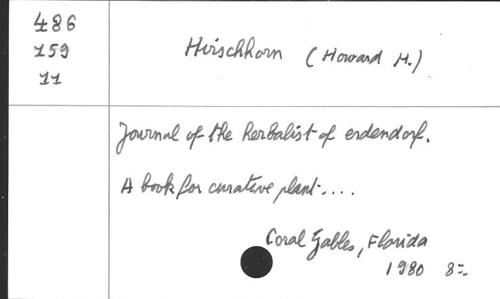 486
159
11
Hirschhorn (Howard H.)
Journal of the herbalist of erdendorf.
A book for curative plant....
Coral Gables, Florida
1980 8=